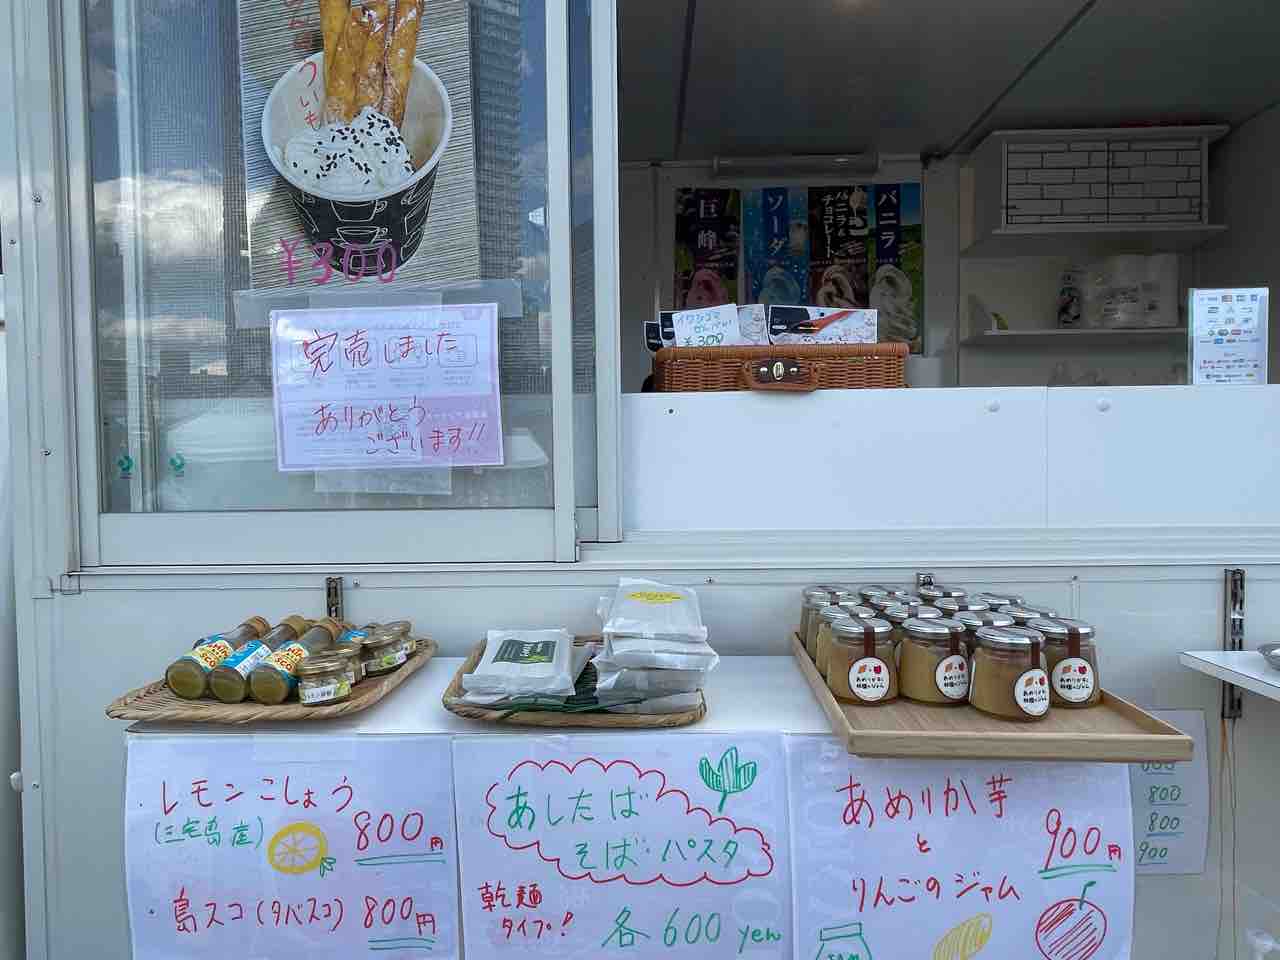 ういも
¥300
完売しました
ありがとう
ございます!!
巨峰
ソーダ
バニラ&
チョコレート
バニラ
イワシゴマ
せんべい
¥300
レモンこしょう
(三宅島産)
800円
島スコ(タバスコ) 800円
あしたば
そば・パスタ
乾麺
タイプ!
各600yen
あめりか芋
と
りんごのジャム
900円
あめりか芋と
林檎のジャム
800
800
900